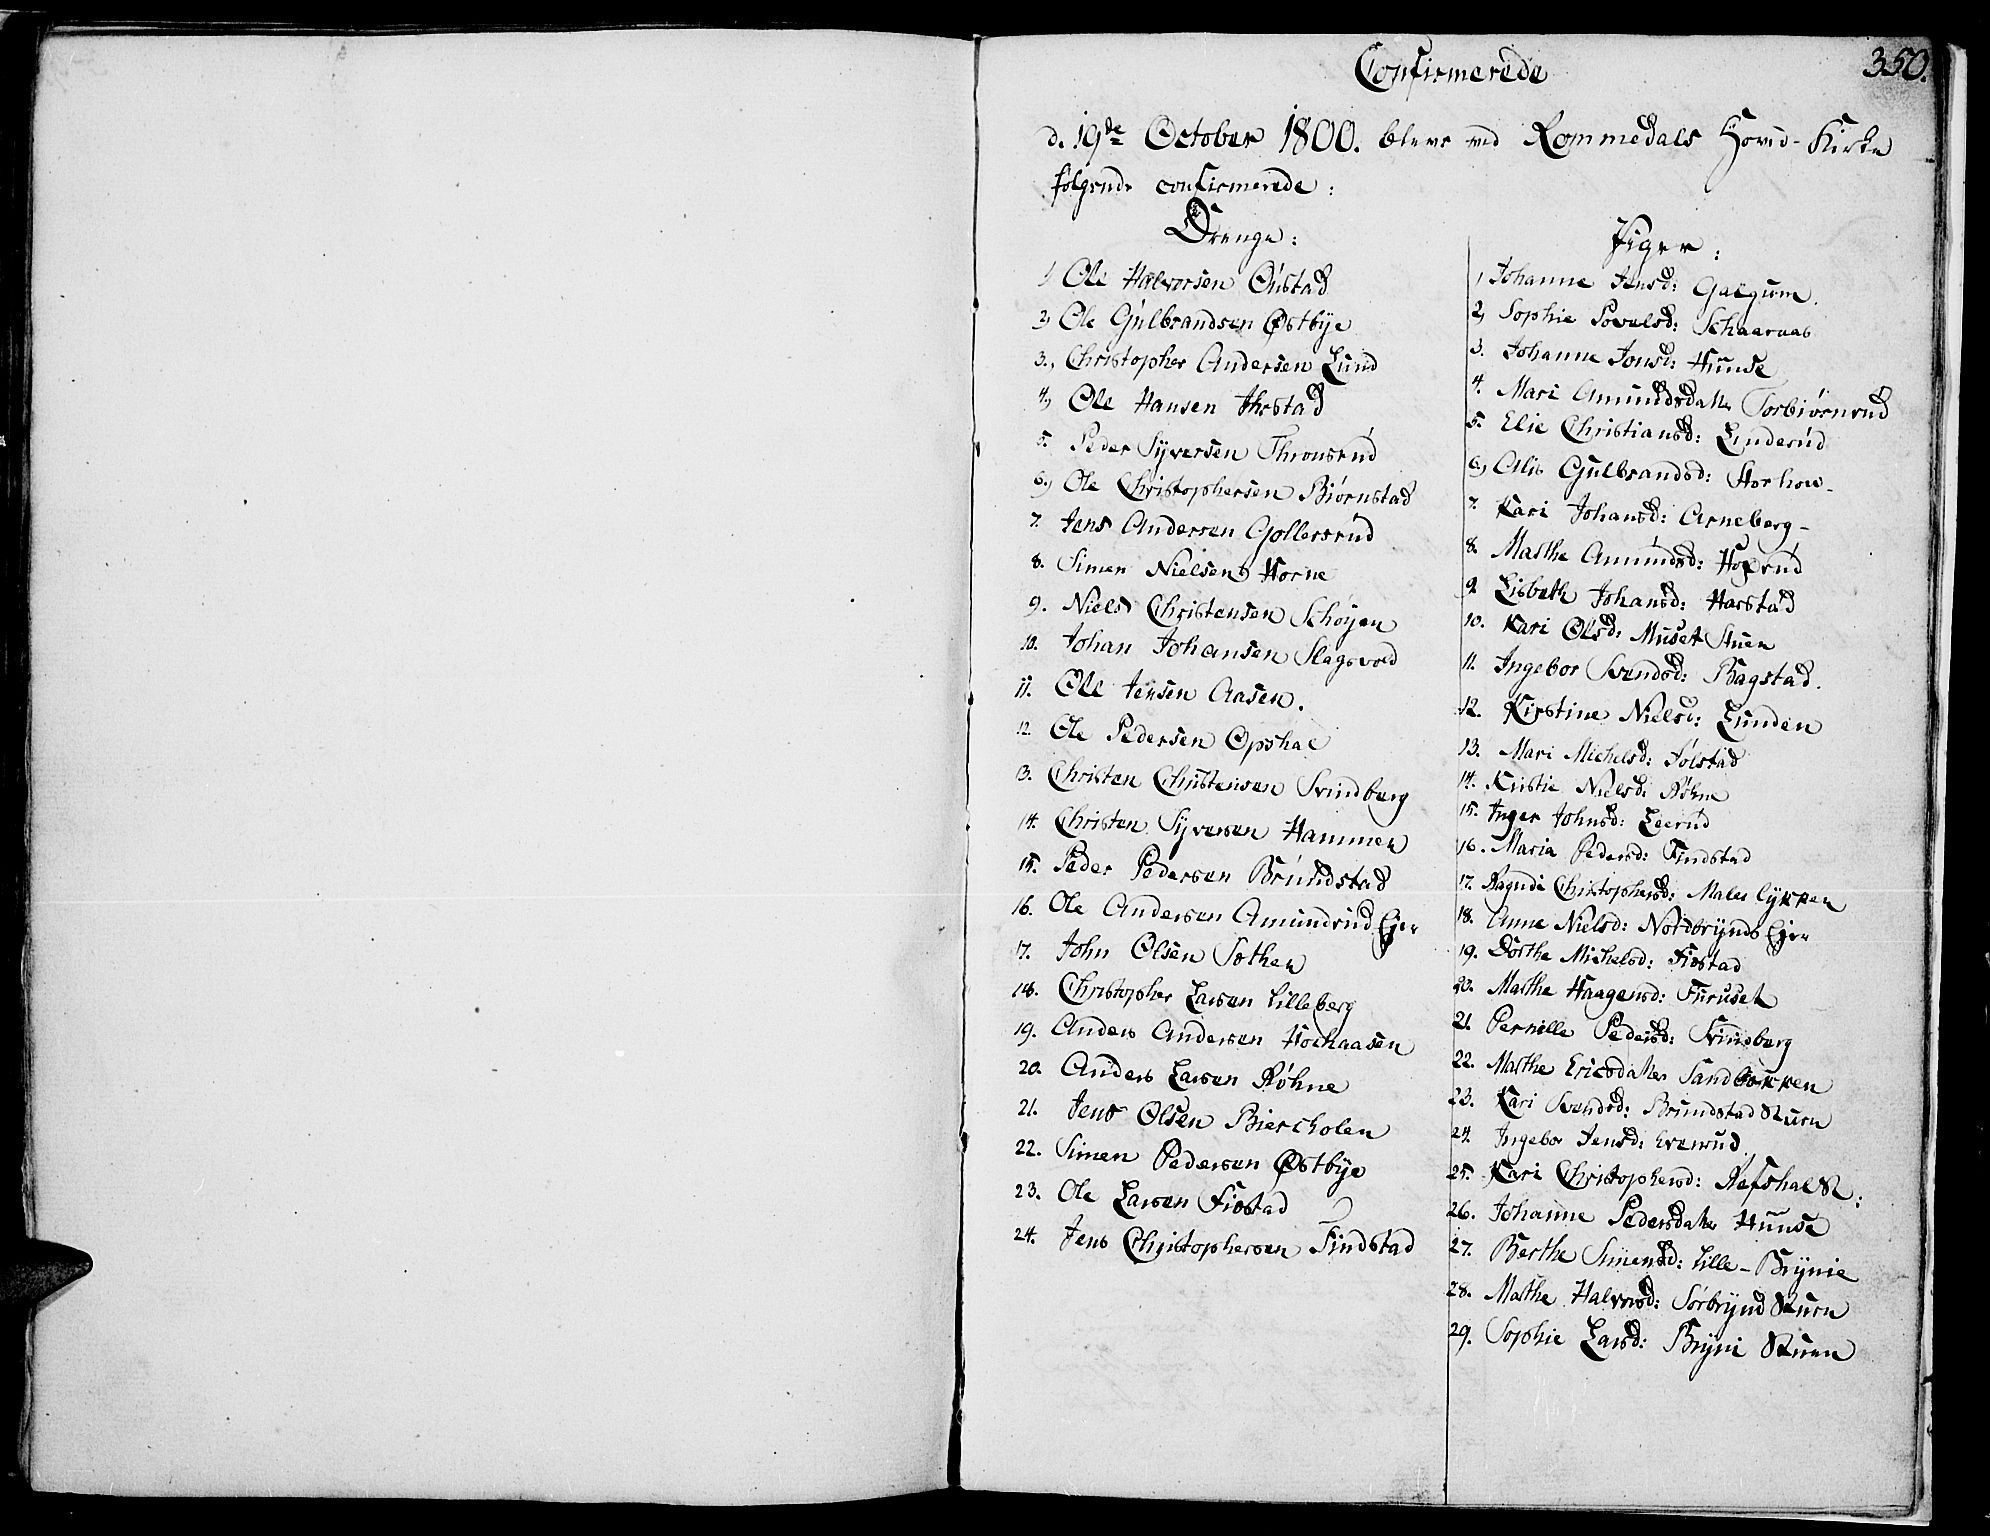 350.
Confirmerede
d. 19de October 1800. bleve ved Rommedals Hoved-Kirke
følgende confirmerede:
Drenge:
1) Ole Halvorsen Øustad
2) Ole Gulbrandsen Østbÿe
3., Christopher Andersen Lund
4) Ole Hansen Ihrstad
5. Peder Sÿversen Thronsrud
6., Ole Christophersen Biørnstad
7. Jens Andersen Gollersrud
8. Simen Nielsen Horne
9. Niels Christensen Schøÿen
10. Johan Johansen Slagsvold
11. Ole Jensen Aasen.
12. Ole Pedersen Opshal
13. Christen Christensen Svindberg
14. Christen Sÿversen Hammer
15. Peder Pedersen Brundstad
16. Ole Andersen Amundrud Ejer
17. John Olsen Sæther
18. Christopher Larsen Lilleberg
19. Anders Andersen Hochaasen
20. Anders Larsen Røhne
21. Jens Olsen Biercholen
22. Simen Pedersen Østbÿe
23. Ole Larsen Fiøstad
24. Jens Christophersen Findstad
Piger:
1, Johanne Jensd: Galgum.
2, Sophie Povelsd: Schaarnas
3. Johanne Jonsd: Hunse
4. Mari Amundsdatter Torbiørnrud
5. Elie Christiansd: Linderud
6, Olis Gulbrandsd: Horhov-
7. Kari Johansd: Arneberg-
8. Marthe Amundsd: Hoxrud
9. Lisbeth Johansd: Harstad
10. Kari Olsd: Muset Stuen
11. Ingebor Svendsd: Bagstad.
12. Kirstine Nielsd: Lunden
13. Mari Michelsd: Jølstad
14. Kristie Nielsd: Røhne
15. Inger Johnsd: Leerud
16. Maria Pedersd: Findstad
17. Ragndi Christophersd: Males lÿkken
18. Anne Nielsd: Nordbrÿnds Ejer
19. Dorthe Michelsd: Fiøstad
20. Marthe Haagensd: Furuset
21. Pernille Pedersd: Svindberg
22. Marthe Ericsdatter Sandbakken
23. Kari Svendsd: Brundstad Stuen
24. Ingebor Jensd: Evenrud.
25. Kari Christophersd: Refshal St:
26. Johanne Pedersdatter Hunse
27. Berthe Simensd: Lille-Brÿnie
28. Marthe Halvorsd: Sørbrÿnd Stuen
29. Sophie Larsd: Brÿni Stuen